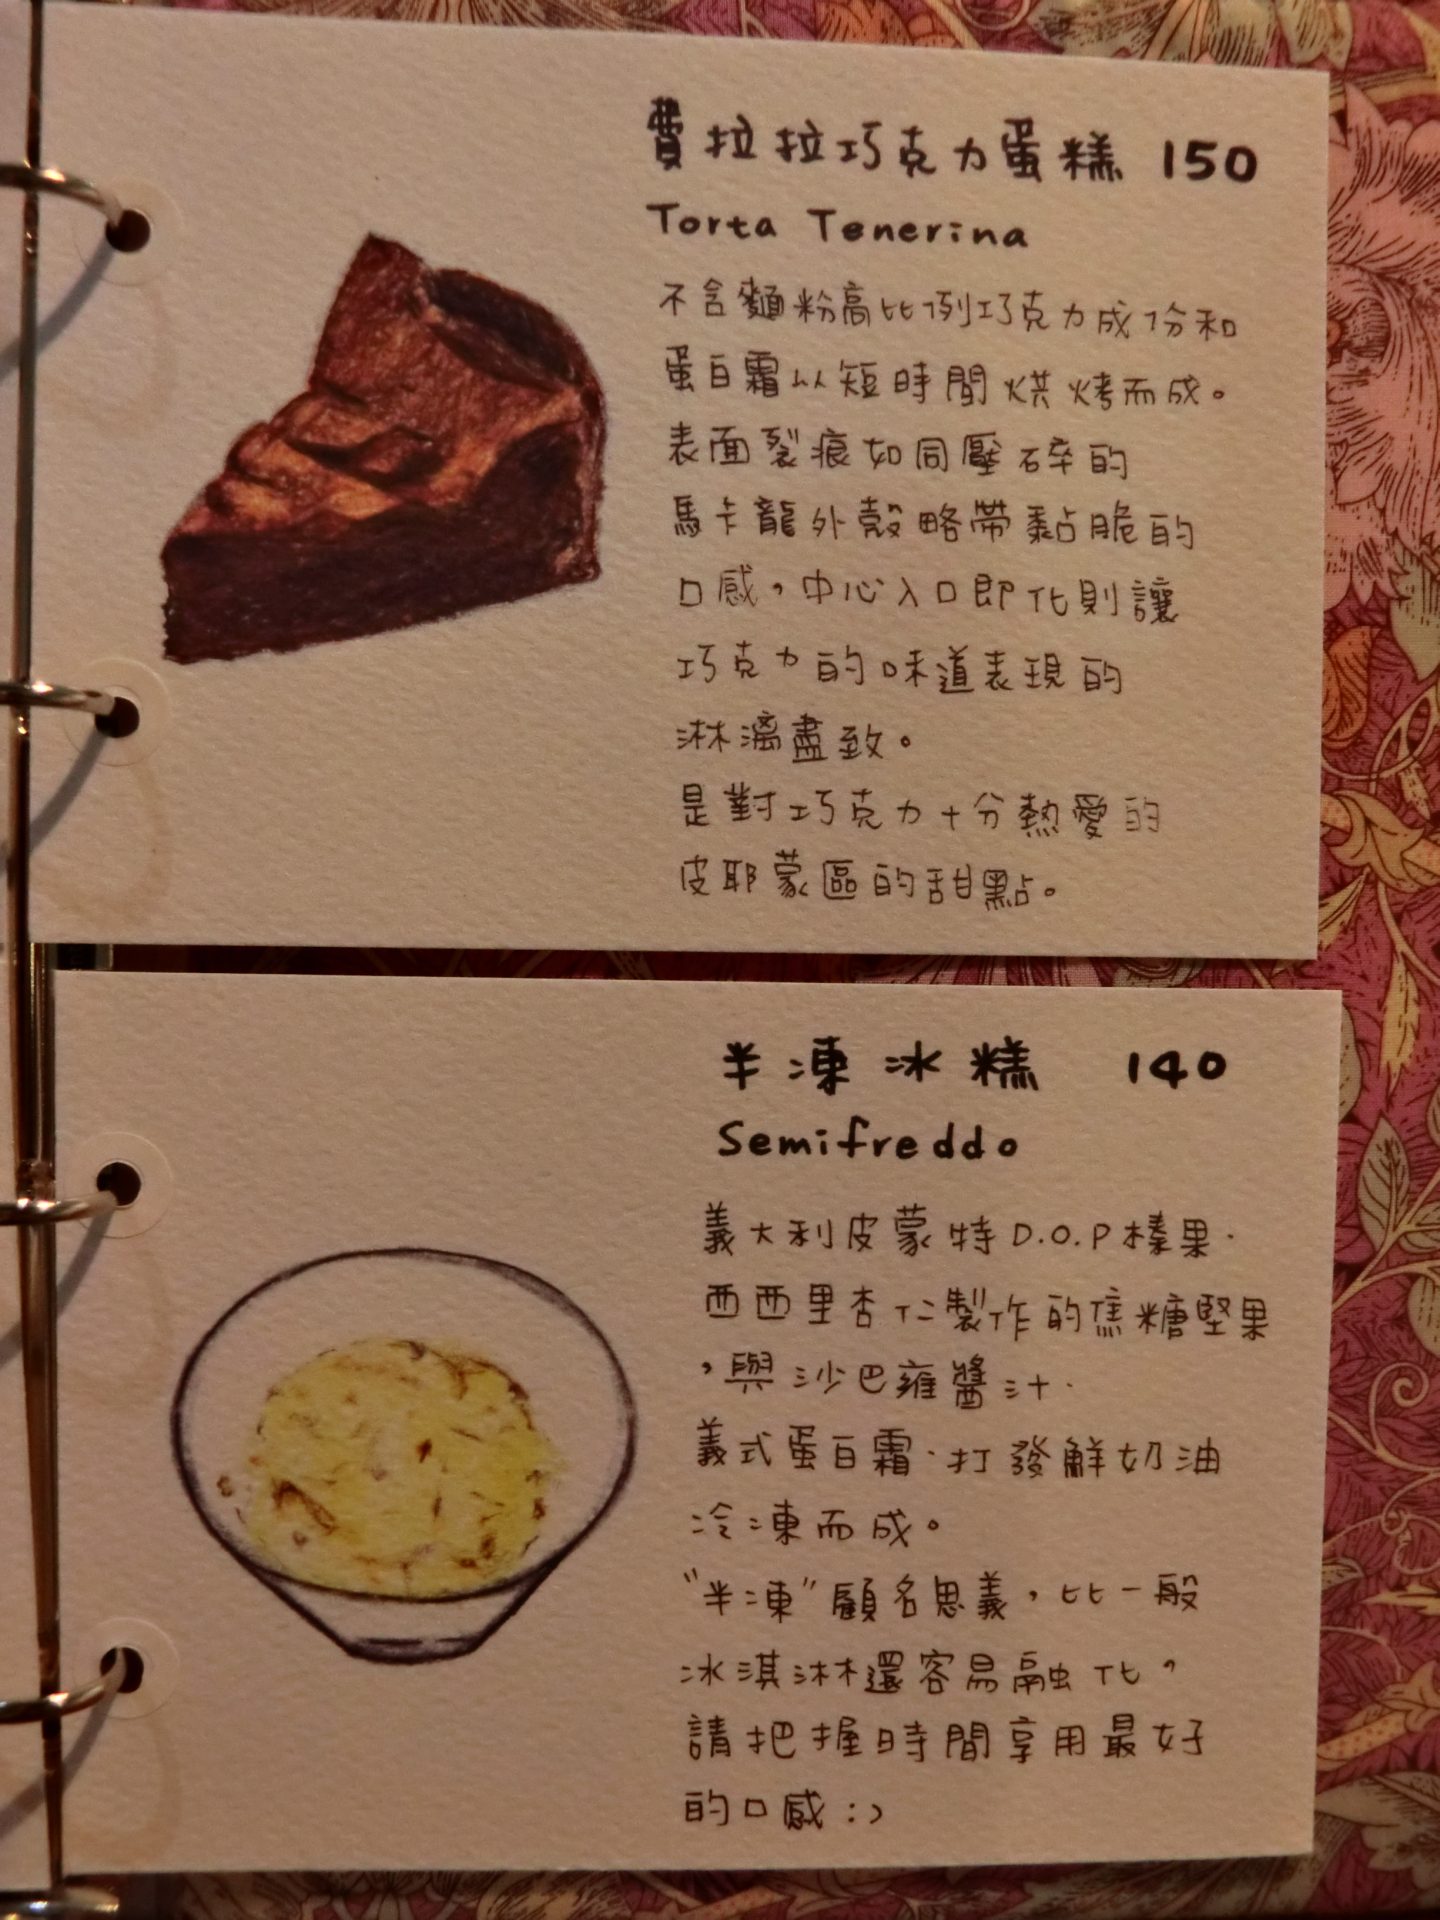 費拉拉巧克力蛋糕 150
Torta Tenerina
不含麵粉高比例巧克力成份和
蛋白霜以短時間烘烤而成。
表面裂痕如同壓碎的
馬卡龍外殼略帶黏脆的
口感，中心入口即化則讓
巧克力的味道表現的
淋漓盡致。
是對巧克力十分熱愛的
皮耶蒙區的甜點。
半凍冰糕 140
Semifreddo
義大利皮蒙特D.O.P榛果．
西西里杏仁製作的焦糖堅果
，與沙巴雍醬汁．
義式蛋白霜．打發鮮奶油
冷凍而成。
"半凍"顧名思義，比一般
冰淇淋還容易融化，
請把握時間享用最好
的口感:)